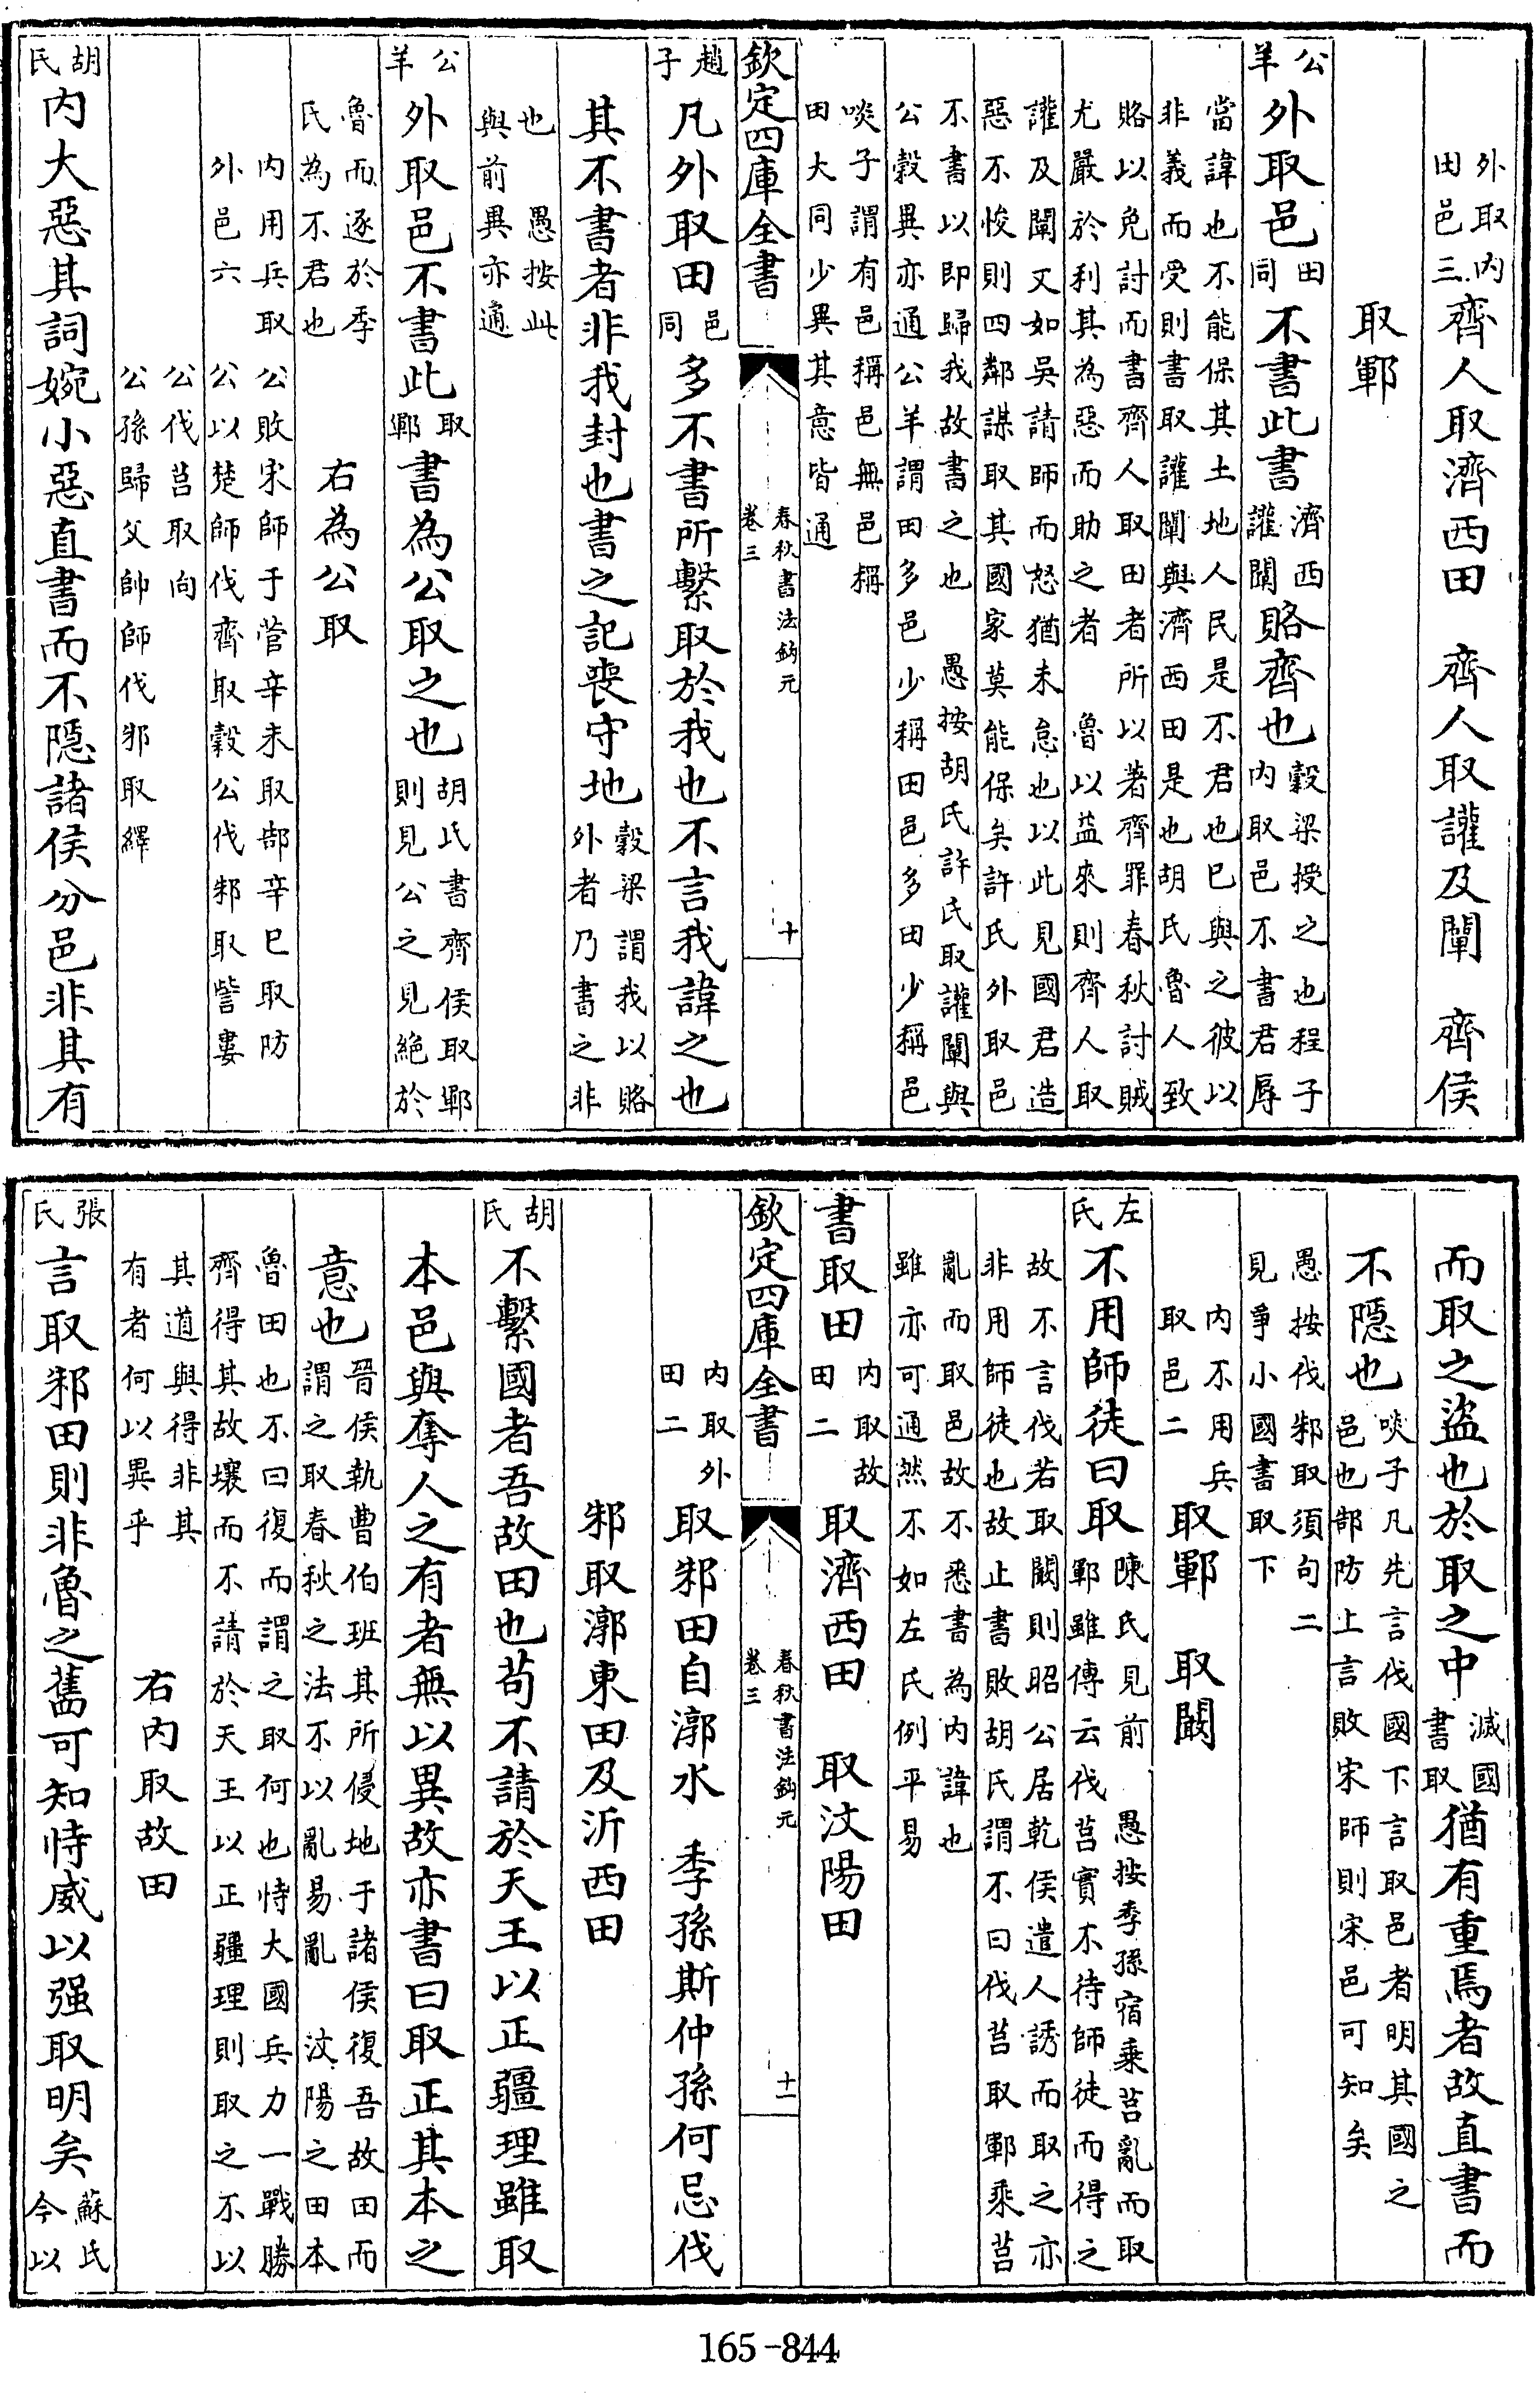 外取内田邑三 齊人取濟西田 齊人取讙及闡 齊侯
取鄆
公羊 外取邑 田同 不書此書 濟西讙闡 賂齊也 穀梁授之也程子
内取邑不書君辱
當諱也不能保其土地人民是不君也已與之彼以
非義而受則書取讙闡與濟西田是也胡氏魯人致
賂以免討而書齊人取田者所以著齊罪春秋討賊
尤嚴於利其為惡而助之者 魯以益來則齊人取
讙及闡又如吳請師而怒猶未怠也以此見國君造
惡不悛則四鄰謀取其國家莫能保矣許氏外取邑
不書以即歸我故書之也 愚按胡氏許氏取讙闡與
公穀異亦通公羊謂田多邑少稱田邑多田少稱邑
啖子謂有邑稱邑無邑稱
田大同少異其意皆通
欽定四庫全書 春秋書法鈎元 卷三 十
趙子 凡外取田 邑同 多不書所繫取於我也不言我諱之也
其不書者非我封也書之記喪守地 穀梁謂我以賂
外者乃書之非
也 愚按此
與前異亦通
公羊 外取邑不書此 取鄆 書為公取之也 胡氏書齊侯取鄆
則見公之見絶於
魯而逐於季
氏為不君也 右為公取
内用兵取外邑六 公敗宋師于菅辛未取郜辛巳取防
公以楚師伐齊取穀公伐邾取訾婁
公伐莒取向
公孫歸父帥師伐邾取繹
胡氏 内大惡其詞婉小惡直書而不隠諸侯分邑非其有
而取之盜也於取之中 滅國書取 猶有重焉者故直書而
不隠也 啖子凡先言伐國下言取邑者明其國之
邑也郜防上言敗宋師則宋邑可知矣
愚按伐邾取須句二
見爭小國書取下
内不用兵取邑二 取鄆 取闞
左氏 不用師徒曰取 陳氏見前 愚按季孫宿乘莒亂而取
鄆雖傳云伐莒實不待師徒而得之
故不言伐若取闞則昭公居乾侯遣人誘而取之亦
非用師徒也故止書敗胡氏謂不曰伐莒取鄆乘莒
亂而取邑故不悉書為内諱也
雖亦可通然不如左氏例平易
書取田 内取故田二 取濟西田 取汶陽田
欽定四庫全書 春秋書法鈎元 卷三 十一
内取外田二 取邾田自漷水 季孫斯仲孫何忌伐
邾取漷東田及沂西田
胡氏 不繫國者吾故田也苟不請於天王以正疆理雖取
本邑與奪人之有者無以異故亦書曰取正其本之
意也 晉侯執曹伯班其所侵地于諸侯復吾故田而
謂之取春秋之法不以亂易亂 汶陽之田本
魯田也不曰復而謂之取何也恃大國兵力一戰勝
齊得其故壤而不請於天王以正疆理則取之不以
其道與得非其
有者何以異乎 右内取故田
張氏 言取邾田則非魯之舊可知恃威以强取明矣 蘇氏
今以
165-844